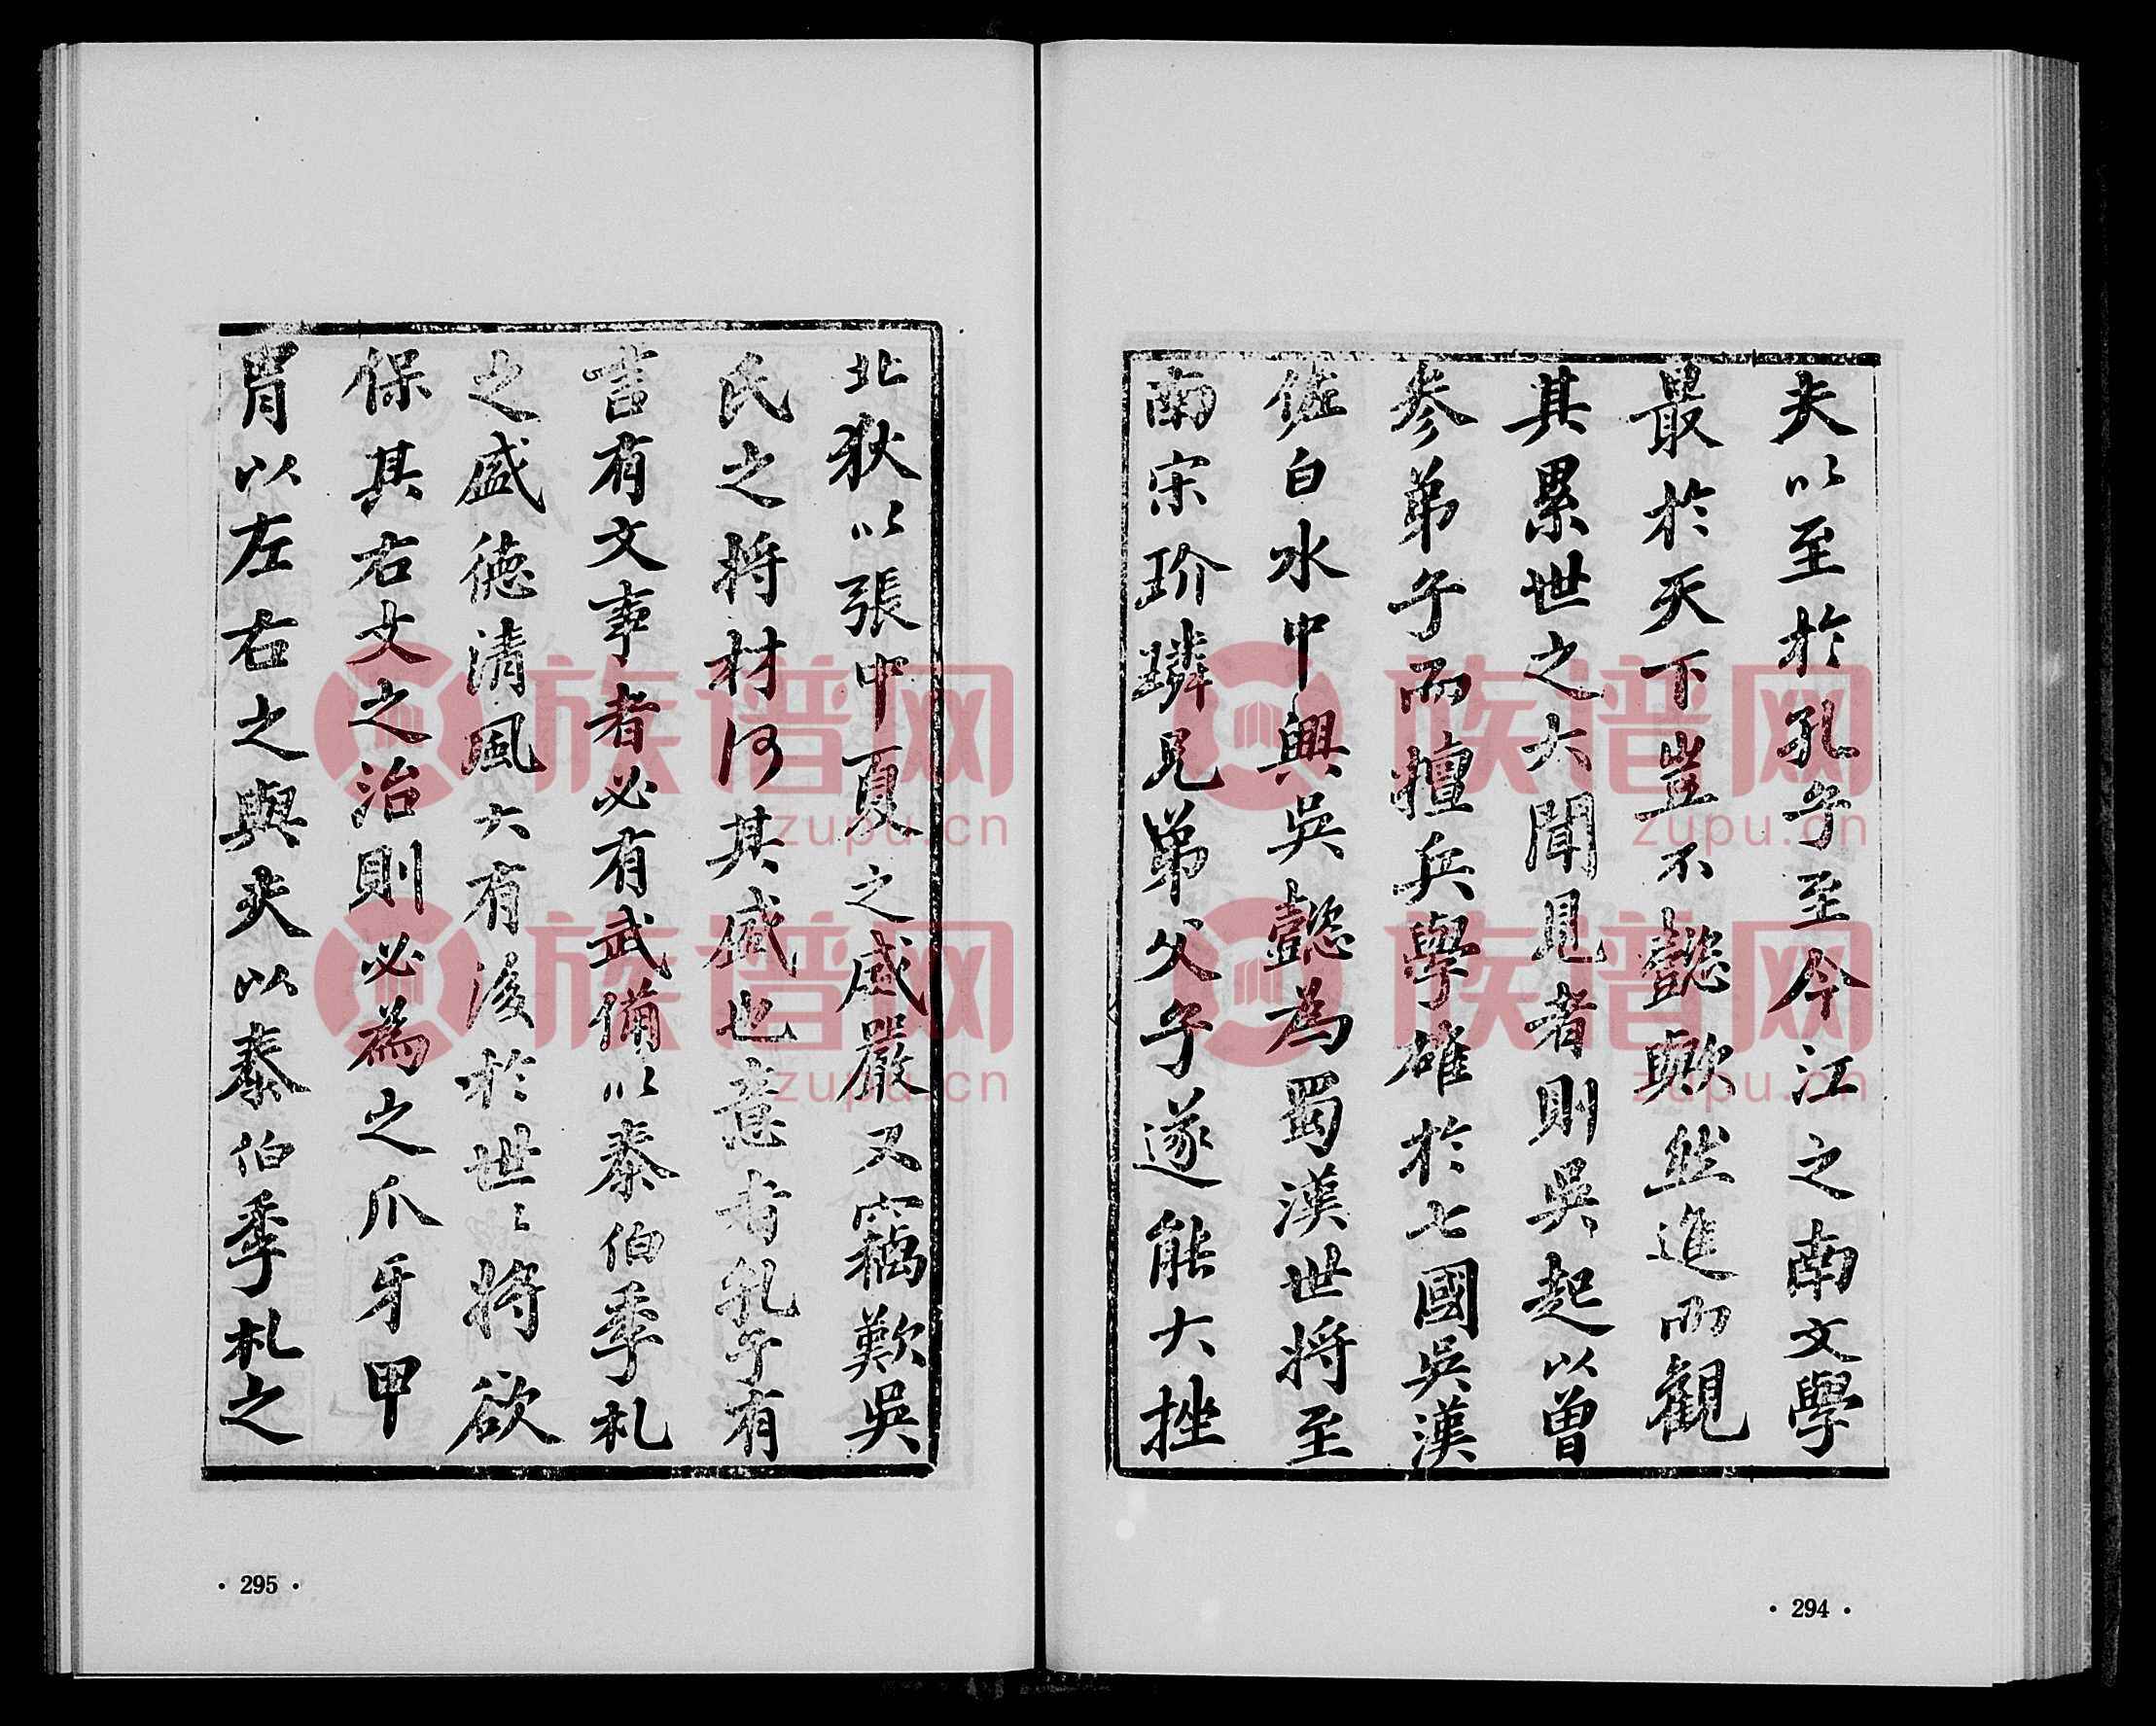 夫以至於孔子至今江之南文學
最於天下豈不懿歟然進而觀
其累世之大聞見者則吳起以曾
參弟子而擅兵學雄於七國吳漢
佐白水中興吳懿為蜀漢世將至
南宋玠璘兄弟父子遂能大挫
· 294 ·
北狄以張中夏之威嚴又竊歎吳
氏之將材何其盛也意者孔子有
言有文事者必有武備以泰伯季札
之盛德清風大有後於世世將欲
保其右文之治則必為之爪牙甲
胄以左右之與夫以泰伯季札之
· 295 ·
族谱网
zupu.cn
族谱网
zupu.cn
族谱网
zupu.cn
族谱网
zupu.cn